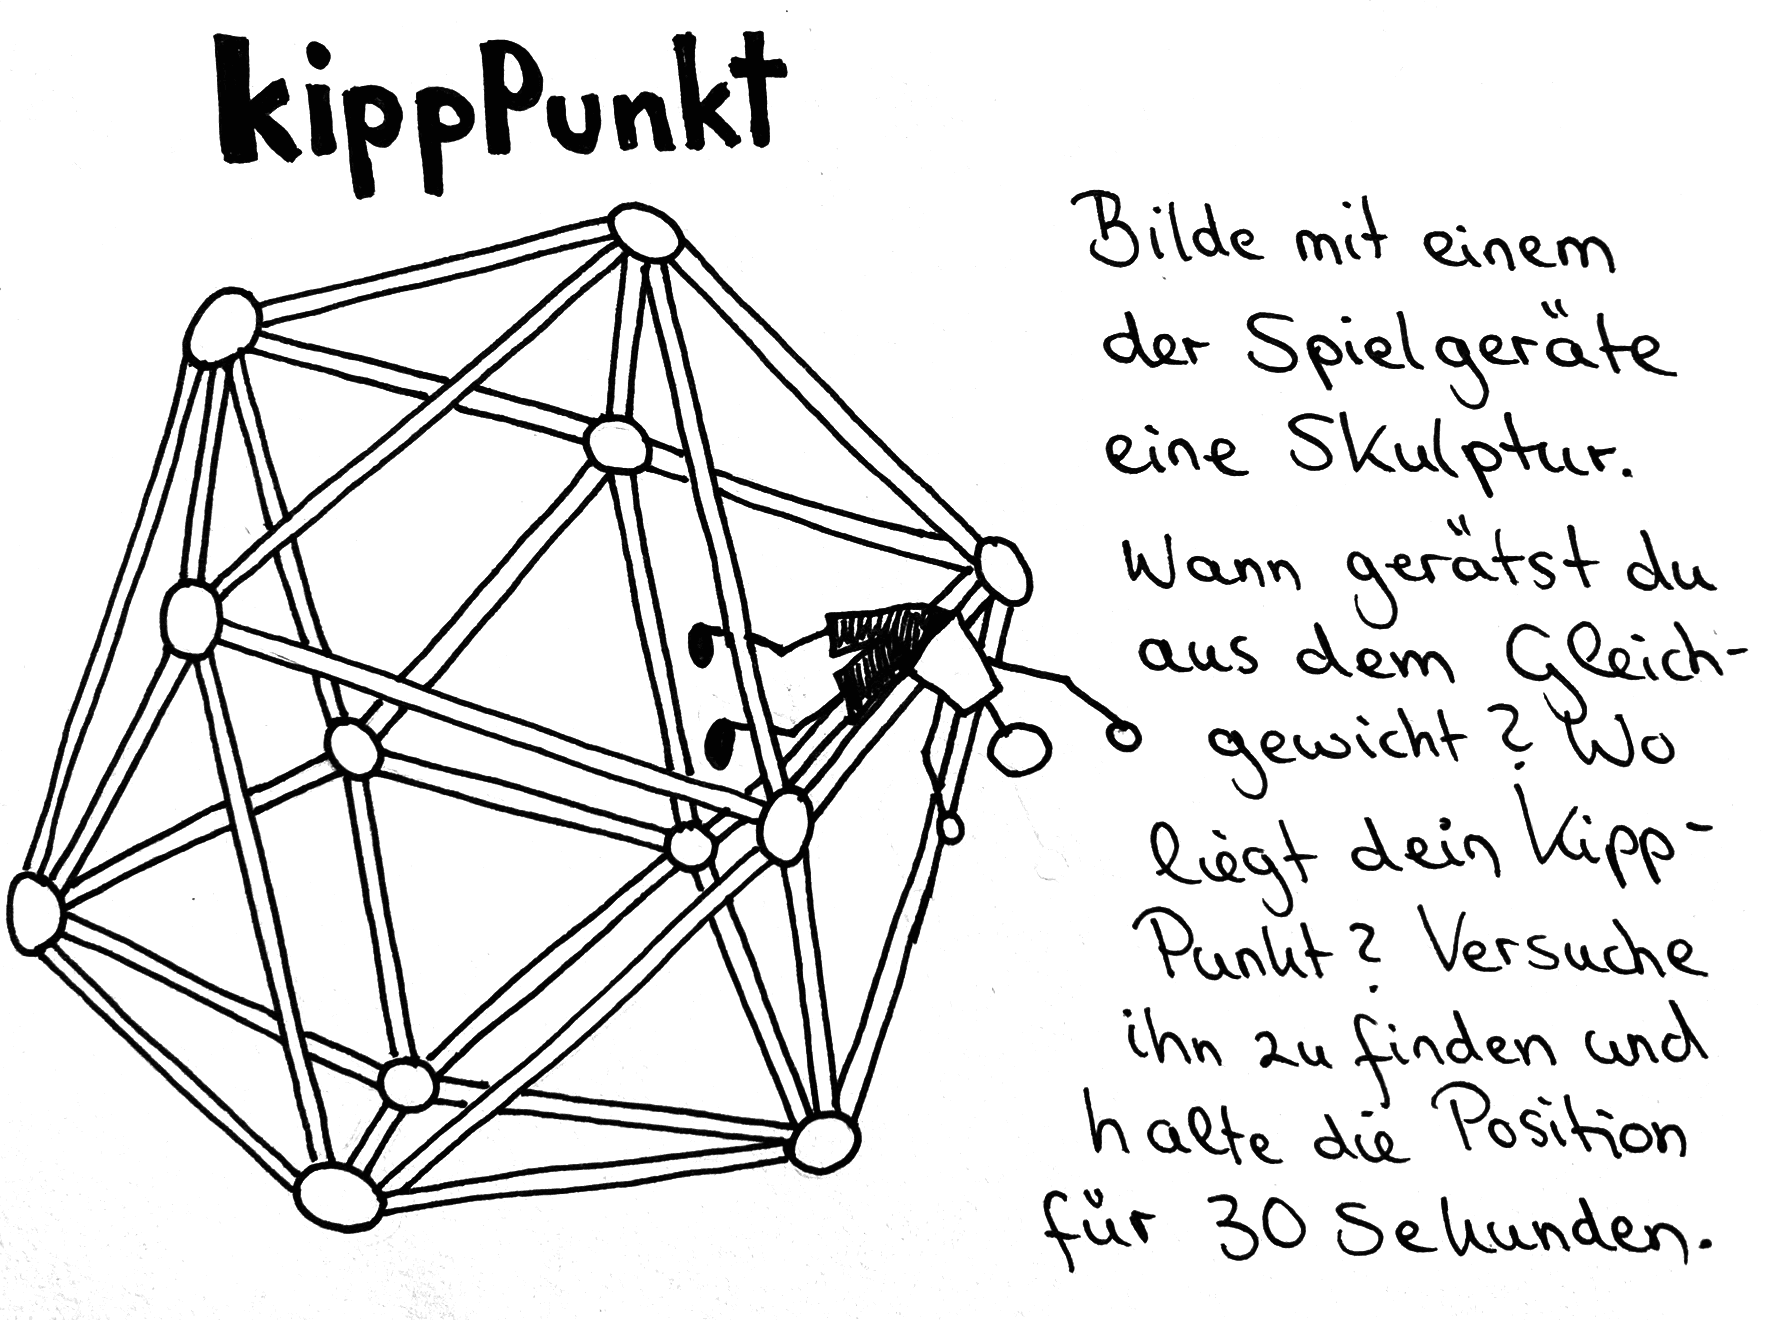 kippPunkt
Bilde mit einem
der Spielgeräte
eine Skulptur.
Wann gerätst du
aus dem Gleich-
gewicht? Wo
liegt dein Kipp-
Punkt? Versuche
ihn zu finden und
halte die Position
für 30 Sekunden.